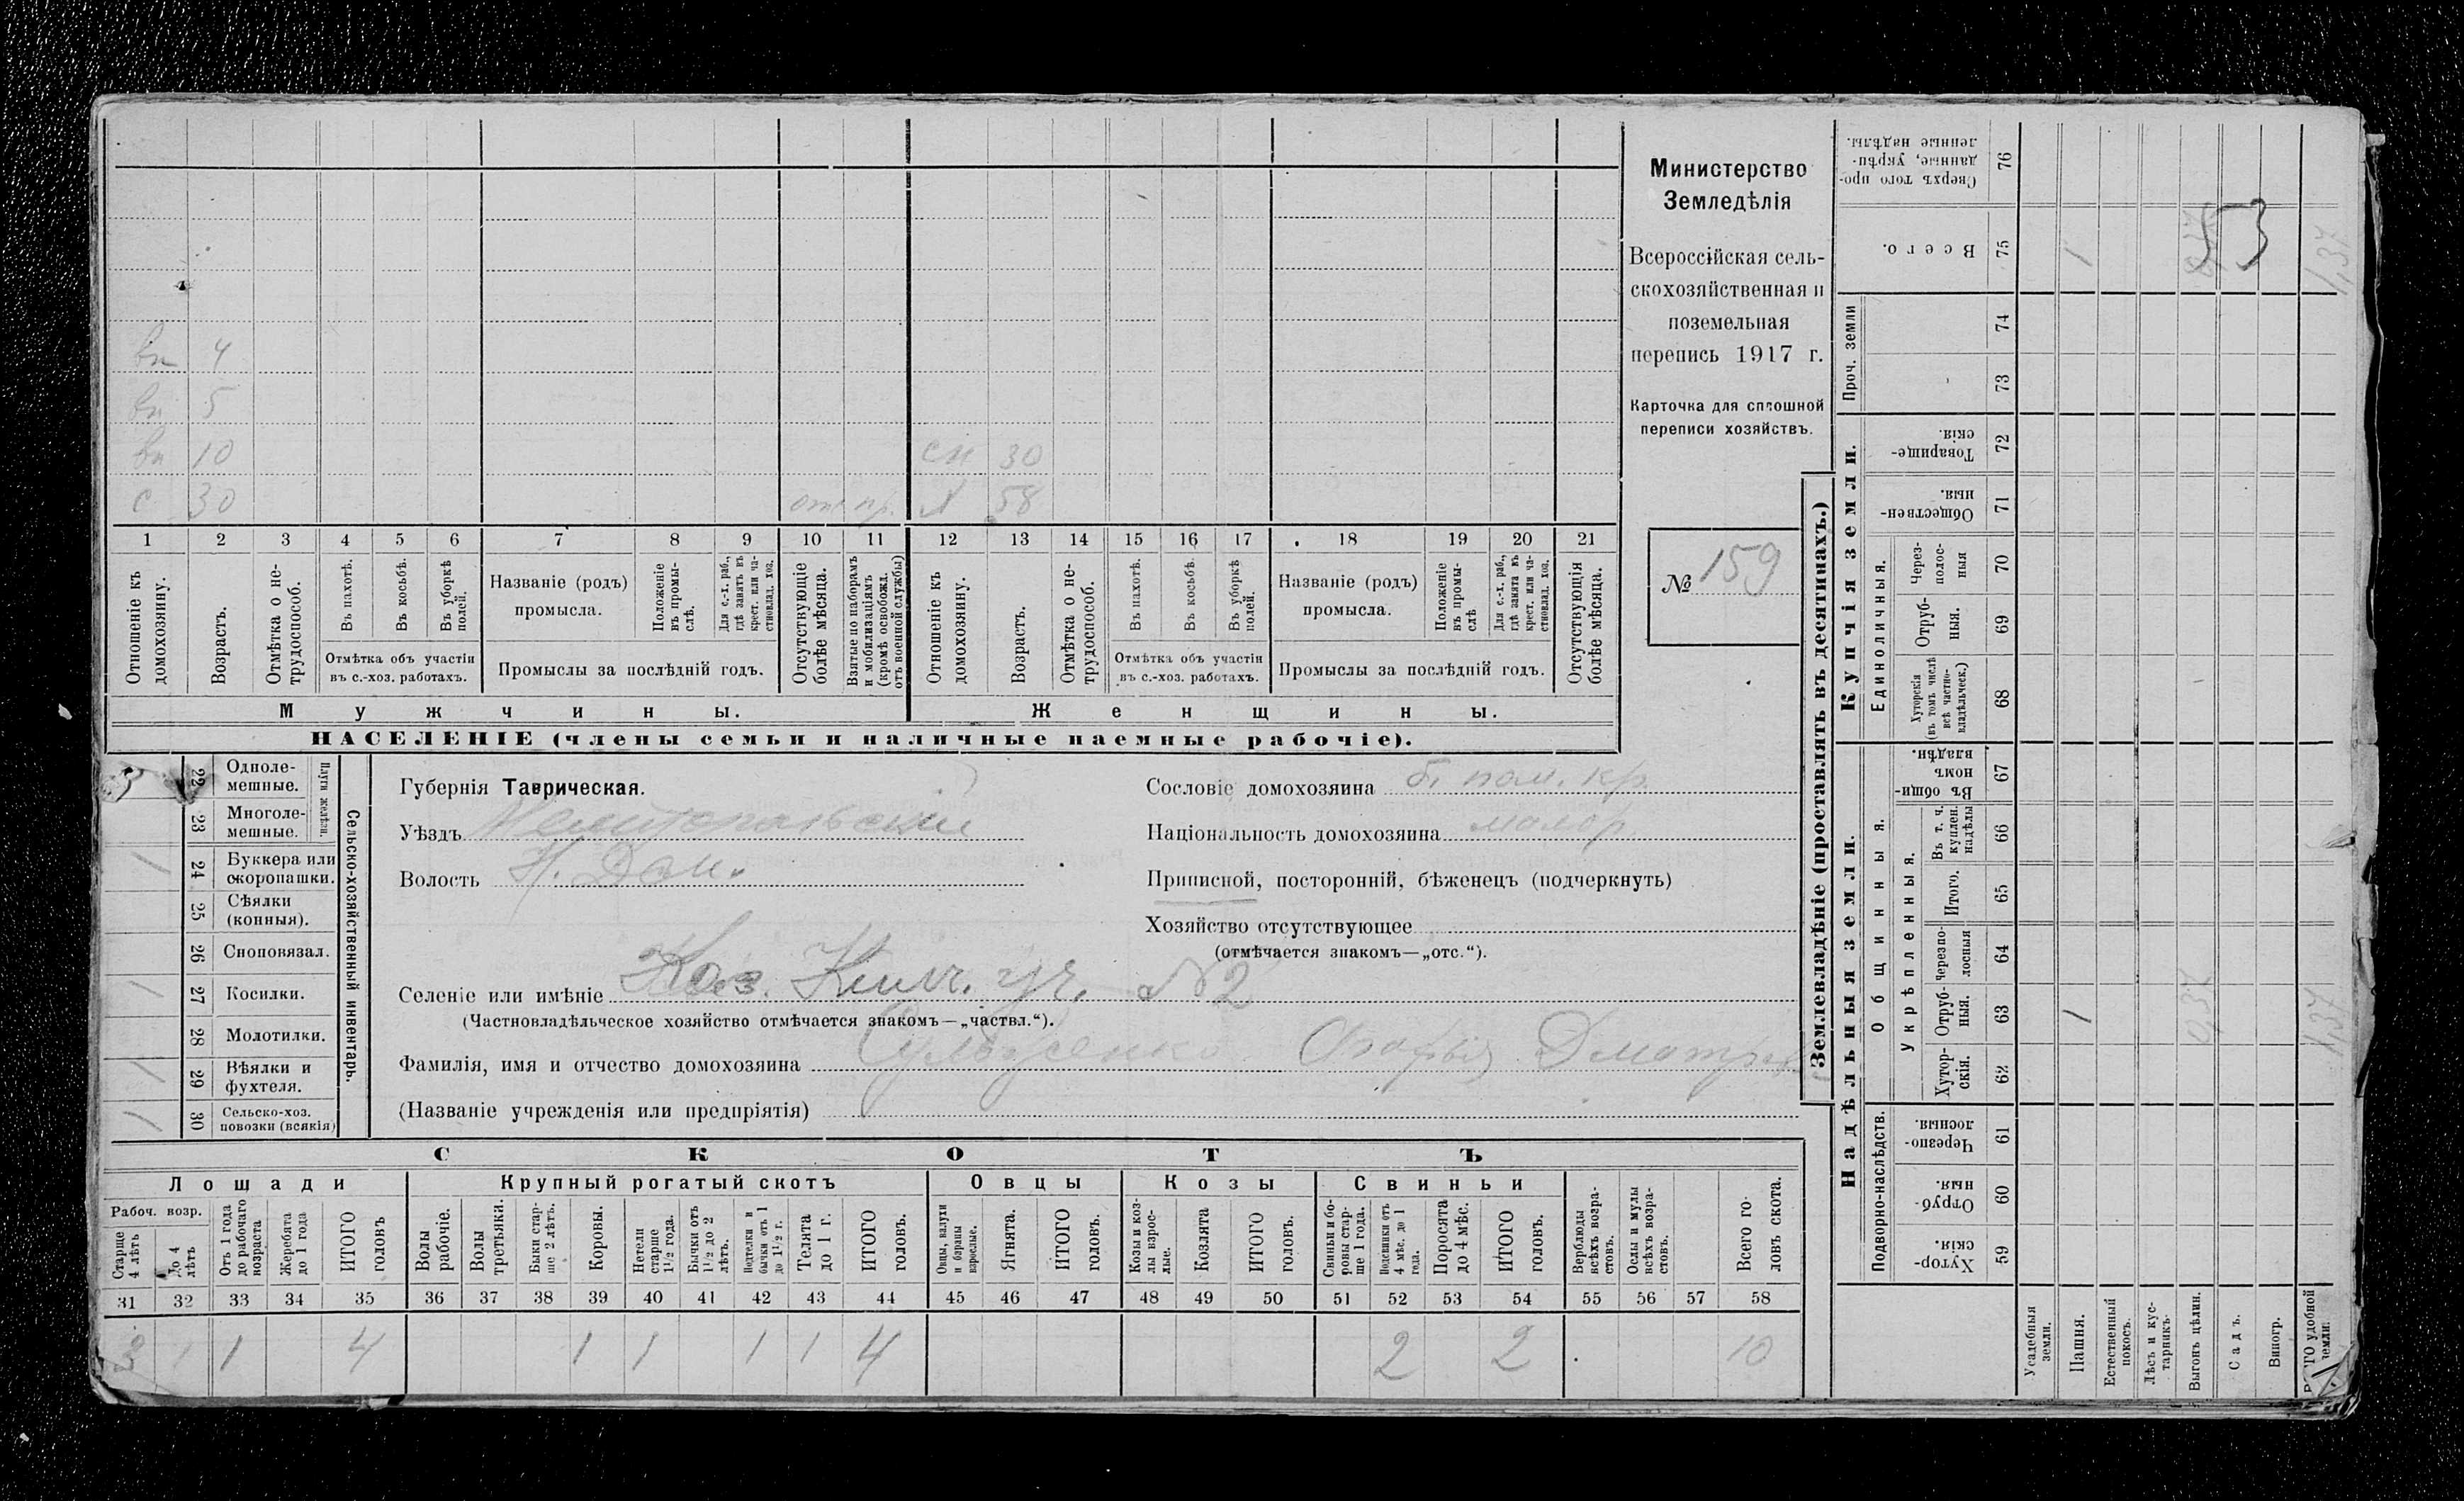 вн 4
вн 5
вн 10 сн 30
с 30 отк пр. х 58
1 2 3 4 5 6 7 8 9 10 11 12 13 14 15 16 17 18 19 20 21
Отношеніе къ домохозяину.
Возрастъ.
Отмѣтка о не-
трудоспособ.
Въ пахотѣ.
Въ косьбѣ.
Въ уборкѣ полей.
Отмѣтка объ участіи
въ с.-хоз. работахъ.
Названіе (родъ)
промысла.
Положеніе въ промы-
слѣ.
Для с.-х. раб., гдѣ занятъ въ крест. или ча-
стновлад. хоз.
Промыслы за послѣдній годъ.
Отсутствующіе болѣе мѣсяца.
Взятые по наборамъ и мобилизаціямъ (кромѣ освобожд. отъ военной службы)
Отношеніе къ домохозяину.
Возрастъ.
Отмѣтка о не-
трудоспособ.
Въ пахотѣ.
Въ косьбѣ.
Въ уборкѣ полей.
Отмѣтка объ участіи
въ с.-хоз. работахъ.
Названіе (родъ)
промысла.
Положеніе въ промы-
слѣ
Для с.-х. раб., гдѣ занята въ крест. или ча-
стновлад. хоз.
Промыслы за послѣдній годъ.
Отсутствующія болѣе мѣсяца.
Мужчины.
Женщины.
НАСЕЛЕНІЕ (члены семьи и наличные наемные рабочіе).
Министерство
Земледѣлія
Всероссійская сель-
скохозяйственная и
поземельная
перепись 1917 г.
Карточка для сплошной
переписи хозяйствъ.
№ 159
Сельско-хозяйственный инвентарь.
Плуги желѣзн.
3 22 Одноле-
мешные.
23 Многоле-
мешные.
1 24 Буккера или
скоропашки.
25 Сѣялки
(конныя).
26 Сноповязал.
1 27 Косилки.
28 Молотилки.
1 29 Вѣялки и
фухтеля.
1 30 Сельско-хоз.
повозки (всякія)
Губернія Таврическая.
Уѣздъ Мелитопольскій
Волость Н. Дан.
Сословіе домохозяина б. пом. кр.
Національность домохозяина малор.
Приписной, посторонній, бѣженецъ (подчеркнуть)
Хозяйство отсутствующее
(отмѣчается знакомъ—„отс.“).
Селеніе или имѣніе Каз. Килч. уч. №2
(Частновладѣльческое хозяйство отмѣчается знакомъ—„частвл.“).
Фамилія, имя и отчество домохозяина
(Названіе учрежденія или предпріятія)
СКОТЪ
Лошади Крупный рогатый скотъ Овцы Козы Свиньи
Рабоч. возр.
Старше 4 лѣтъ
До 4 лѣтъ
Отъ 1 года до рабочаго возраста
Жеребята до 1 года
ИТОГО головъ
Волы рабочіе.
Волы третьяки.
Быки стар-
ше 2 лѣтъ.
Коровы.
Нетели старше 1½ года.
Бычки отъ 1½ до 2 лѣтъ.
Подтелки и бычки отъ 1 до 1½ г.
Телята до 1 г.
ИТОГО головъ.
Овцы, валухи и бараны взрослые.
Ягнята.
ИТОГО головъ.
Козы и коз-
лы взрос-
лые.
Козлята
ИТОГО головъ.
Свиньи и бо-
ровы стар-
ше 1 года.
Подсвинки отъ 4 мѣс. до 1 года.
Поросята до 4 мѣс.
ИТОГО головъ.
Верблюды всѣхъ возра-
стовъ.
Ослы и мулы всѣхъ возра-
стовъ.
Всего го-
ловъ скота.
31 32 33 34 35 36 37 38 39 40 41 42 43 44 45 46 47 48 49 50 51 52 53 54 55 56 57 58
3 1 1 4 1 1 1 1 4 2 2 10
Землевладѣніе (проставлять въ десятинахъ.)
Купчія земли.
Надѣльныя земли.
Сверхъ того про-
данные, укрѣп-
ленные надѣлы. 76
Всего. 75 1 53 1,37
Проч. земли 74
73
Товарище-
скія. 72
Обществен-
ныя. 71
Единоличныя.
Через-
полос-
ныя 70
Отруб-
ныя. 69
Хуторскія (въ томъ числѣ всѣ частно-
владѣльческ.) 68
Общинныя.
Въ общин-
номъ владѣн. 67
Укрѣпленныя.
Въ т. ч. куплен. надѣлы 66
Итого. 65
Черезпо-
лосныя 64
Отруб-
ныя. 63 1 0,37 1,37
Хутор-
скія. 62
Подворно-наслѣдств.
Черезпо-
лосныя. 61
Отруб-
ныя. 60
Хутор-
скія. 59
Усадебныя земли.
Пашня.
Естественный покосъ.
Лѣсъ и кус-
тарникъ.
Выгонъ цѣлин.
Садъ.
Виногр.
удобной земли.